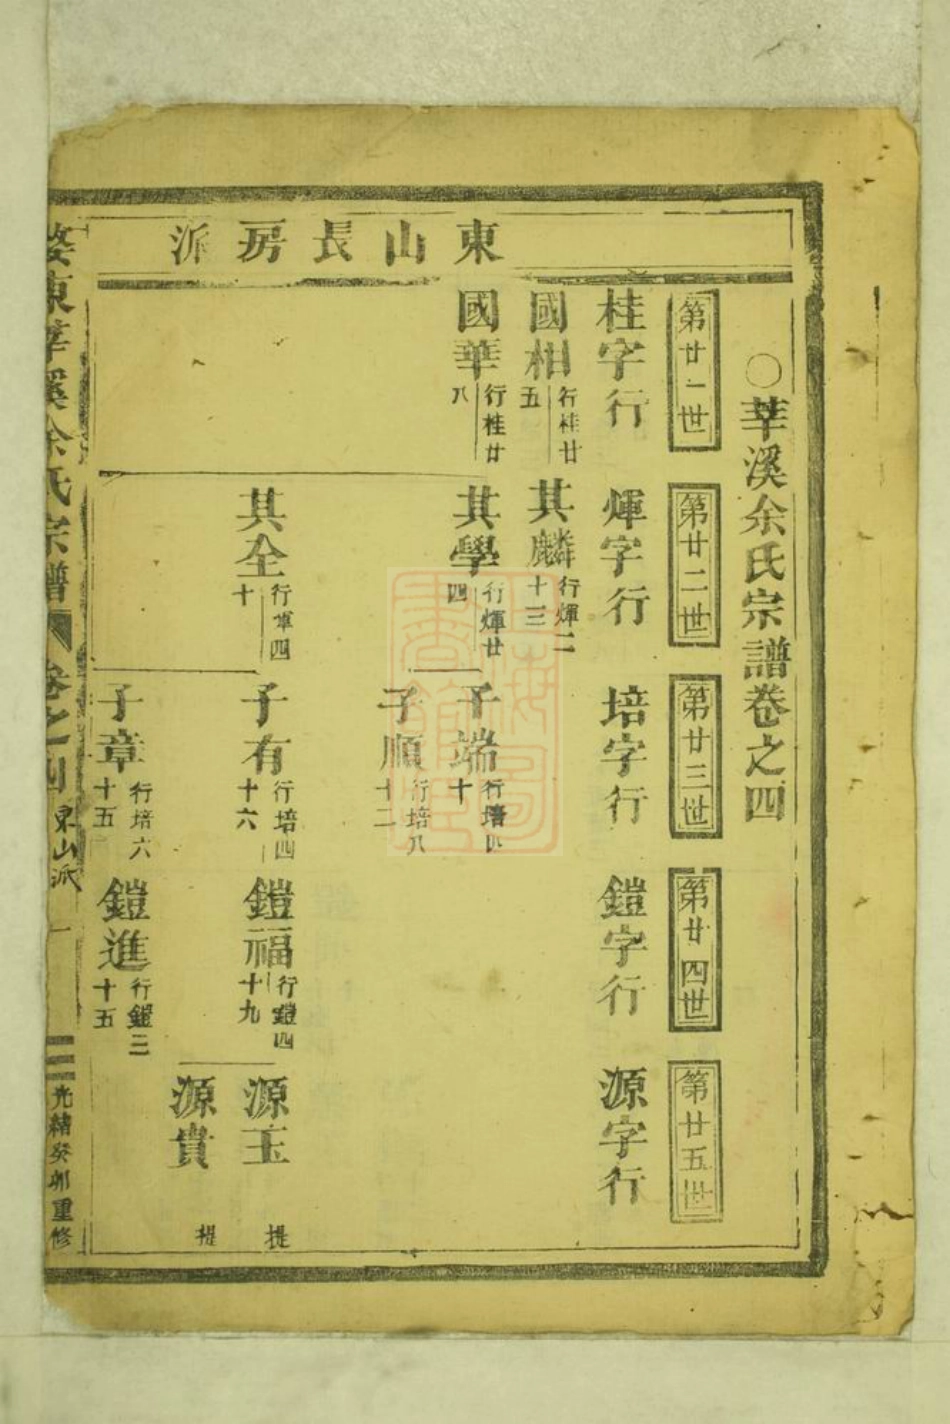 ○莘溪余氏宗譜卷之四
東山長房派
第廿一世
第廿二世
第廿三世
第廿四世
第廿五世
桂字行
煇字行
培字行
鎧字行
源字行
國相 行桂廿五
其麟 行煇二十三
國華 行桂廿八
其學 行煇廿四
子端 行培四十
子順 行培八十二
其全 行煇四十
子有 行培四十六
鎧福 行鎧四十九
源玉 提
源貴 提
子章 行培六十五
鎧進 行鎧三十五
婺東莘溪余氏宗譜 卷之四 東山派 一 光緒癸卯重修